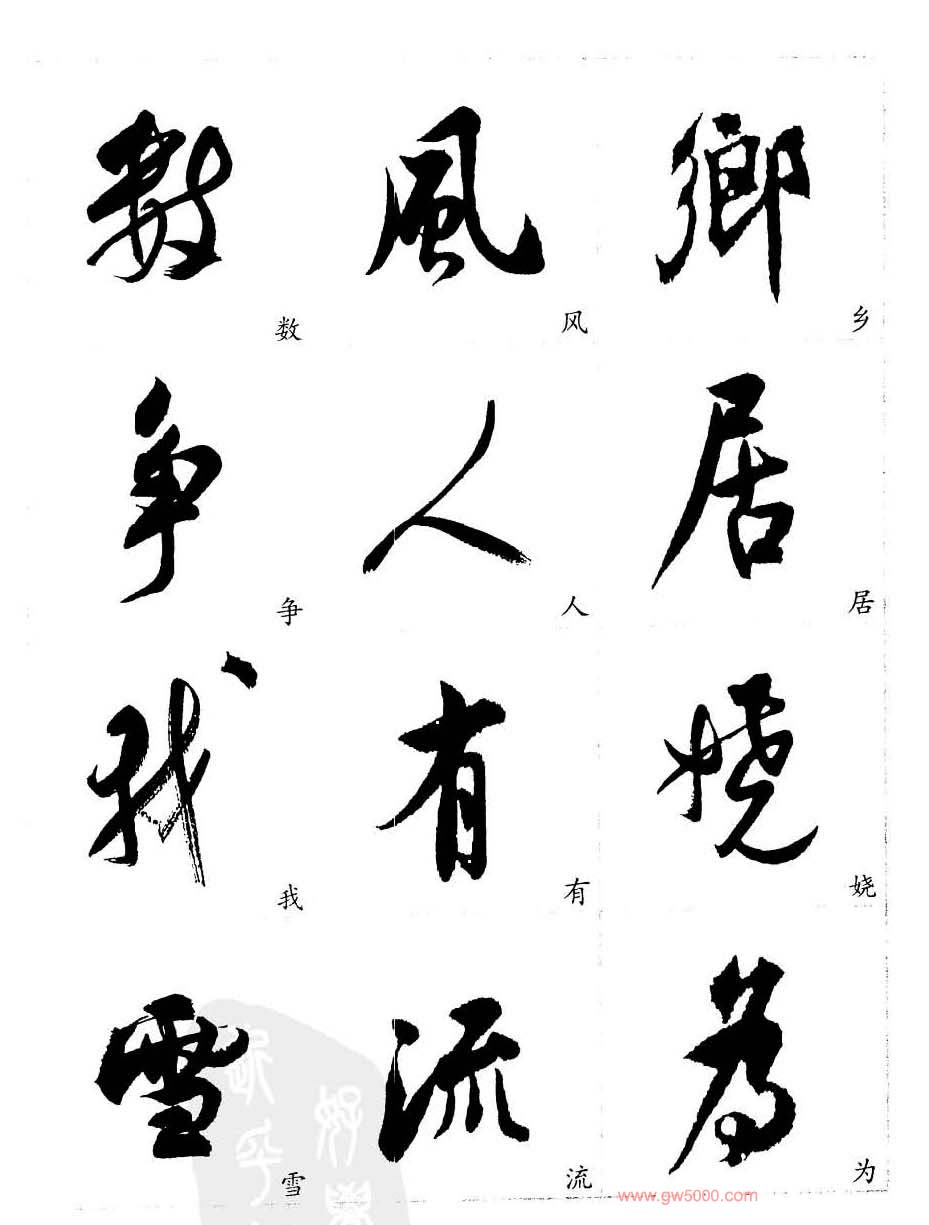 鄉
乡
居
居
娆
娆
為
为
風
风
人
人
有
有
流
流
數
数
争
争
我
我
雪
雪
www.gw5000.com